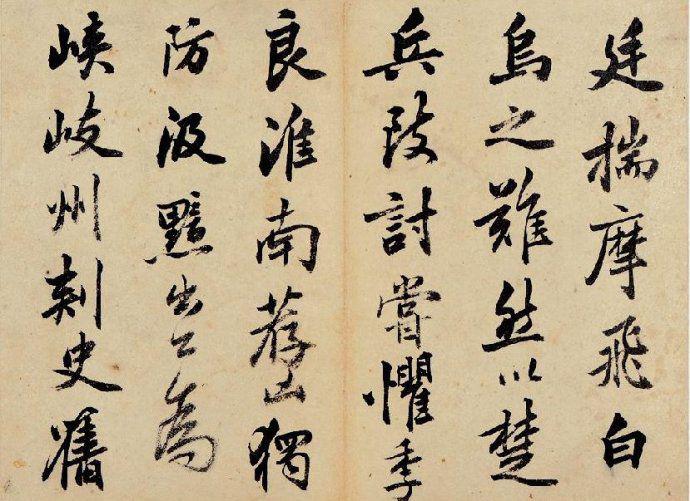 廷揣摩飛白
烏之難然以楚
兵致討嘗懼季
良淮南荐凶獨
防汲黯出公為
峽岐州刺史舊